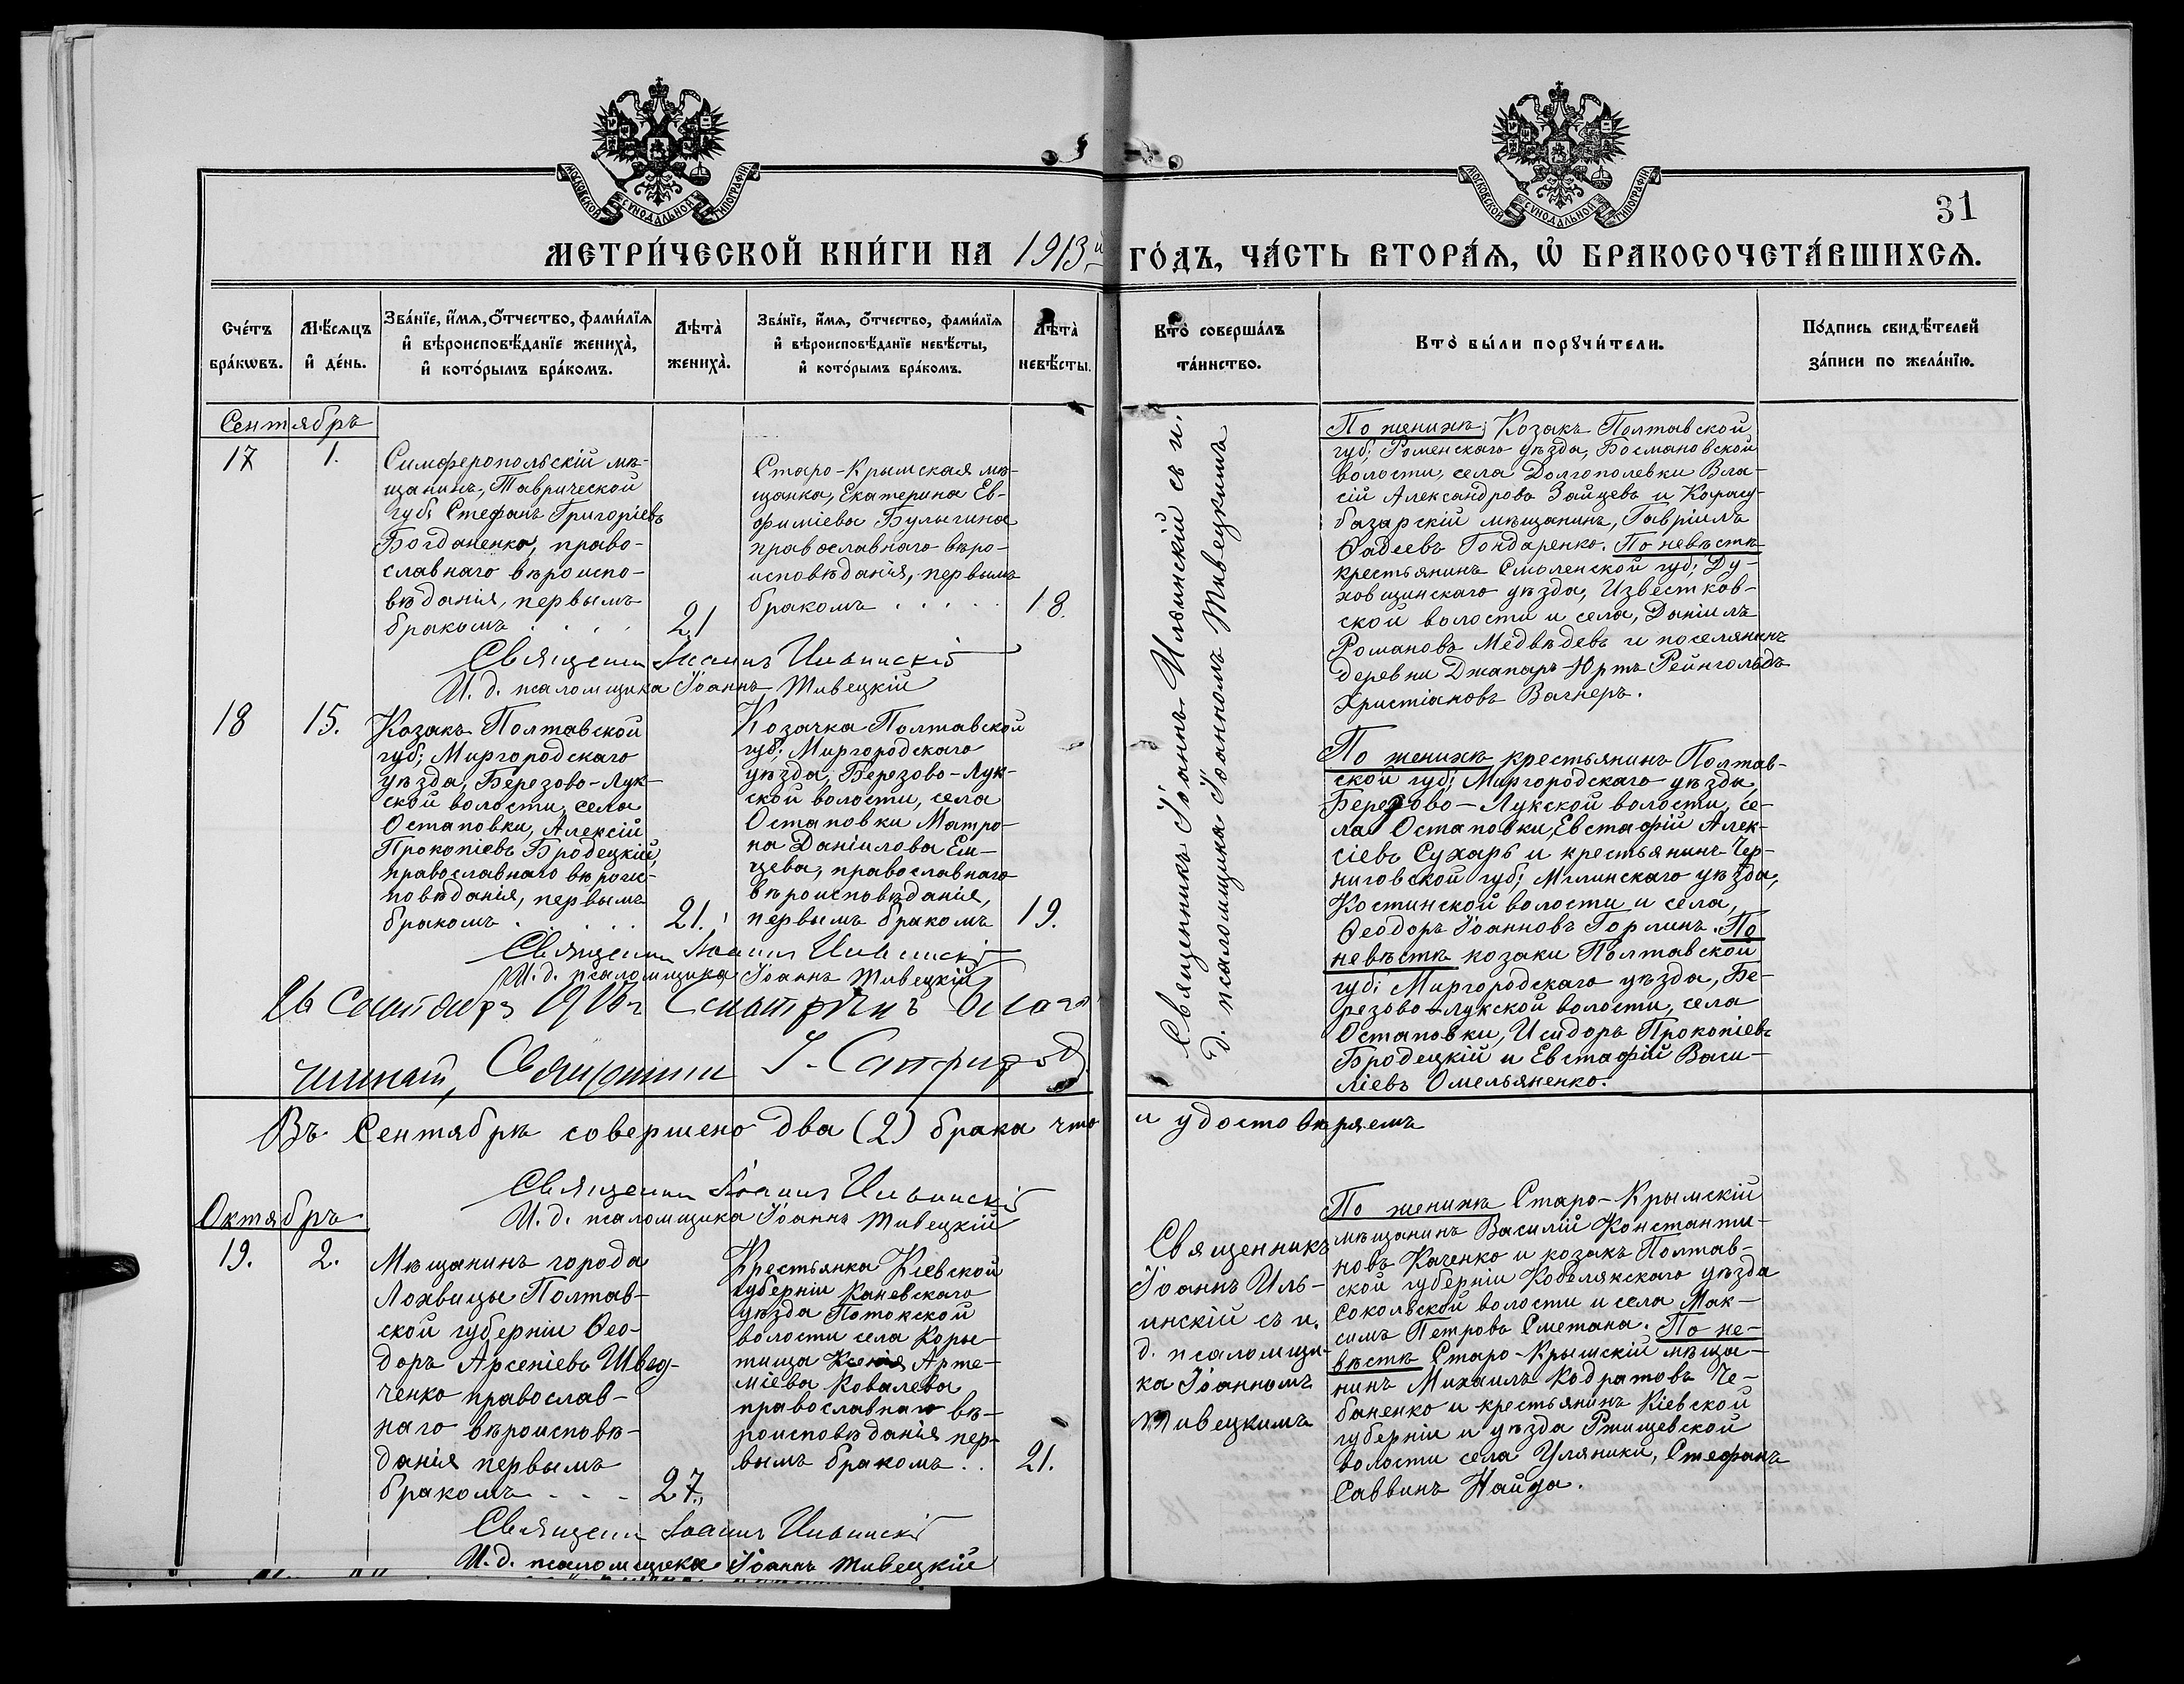 МОСКОВСКОЙ СѴНОДАЛЬНОЙ ТИПОГРАФІИ
МОСКОВСКОЙ СѴНОДАЛЬНОЙ ТИПОГРАФІИ
31
МЕТРИ́ЧЕСКОЙ КНИ́ГИ НА 1913й ГО́ДЪ, ЧА́СТЬ ВТОРА́Ѧ, Ѿ БРАКОСОЧЕТА́ВШИХСѦ.
Сче́тъ
бра́кѡвъ.
Мѣ́сѧцъ
и҆ де́нь.
Зва́нїе, и҆́мѧ, ѻ҆́тчество, фами́лїѧ
и҆ вѣроисповѣ́данїе жениха̀,
и҆ кото́рымъ бра́комъ.
Лѣта̀
жениха̀.
Зва́нїе, и҆́мѧ, ѻ҆́тчество, фами́лїѧ
и҆ вѣроисповѣ́данїе невѣ́сты,
и҆ кото́рымъ бра́комъ.
Лѣта̀
невѣ́сты.
Кто̀ соверша́лъ
та́инство.
Кто̀ бы́ли порꙋчи́тели.
По́дпись свидѣ́телей
за́писи по жела́нїю.
Сентябрь
17
1.
Симферопольскій мѣ-
щанинъ, Таврической
губ; Стефанъ Григоріевъ
Богданенко, право-
славнаго вѣроиспо-
вѣданія, первымъ
бракомъ . . . .
21
Старо-Крымская мѣ-
щанка, Екатерина Ев-
фиміева Булыгина
православнаго вѣро-
исповѣданія, первымъ
бракомъ . . . . .
18.
Священникъ Іоаннъ Ильинскій съ и.
д. псаломщика Іоанномъ Тивецкимъ
По женихѣ: Козакъ Полтавской
губ; Роменскаго уѣзда, Босмановской
волости, села Долгополевки Вла-
сій Александровъ Зайцевъ и Карасу-
базарскій мѣщанинъ, Гавріилъ
Ѳадеевъ Гондаренко. По невѣстѣ
крестьянинъ Смоленской губ; Ду-
ховщинскаго уѣзда, Известков-
ской волости и села, Даніилъ
Романовъ Медвѣдевъ и поселянинъ
деревни Джапаръ-Юртъ Рейнгольдъ
Христіановъ Вагнеръ.
Священник Іоаннъ Ильинскій
И. д. псаломщика Іоаннъ Тивецкій
18
15.
Козакъ Полтавской
губ; Миргородскаго
уѣзда, Березово-Лук-
ской волости, села
Остаповки, Алексій
Прокопіевъ Бродецкій,
православнаго вѣроис-
повѣданія, первымъ
бракомъ . . . .
21.
Козачка Полтавской
губ; Миргородскаго
уѣзда, Березово-Лук-
ской волости, села
Остаповки Матро-
на Даніилова Ем-
цева, православнаго
вѣроисповѣданія,
первымъ бракомъ
19.
По женихѣ крестьянинъ Полтав-
ской губ; Миргородскаго уѣзда
Березово-Лукской волости, се-
ла Остаповки, Евстафій Алек-
сіевъ Сухарь и крестьянинъ Чер-
ниговской губ; Мглинскаго уѣзда,
Костинской волости и села,
Ѳеодоръ Іоанновъ Горлинъ. По
невѣстѣ козаки Полтавской
губ; Миргородскаго уѣзда, Бе-
резово-Лукской волости, села
Остаповки, Исидоръ Прокопіевъ
Бродецкій и Евстафій Васи-
ліевъ Омельяненко.
Священник Іоаннъ Ильинскій
И. д. псаломщика Іоаннъ Тивецкій
Смотрѣнъ Благо-
Священник
Въ Сентябрѣ совершено два (2) брака что и удостовѣряемъ
Священник Іоаннъ Ильинскій
И. д. псаломщика Іоаннъ Тивецкій
Октябрь
19.
2.
Мѣщанинъ города
Лохвицы Полтав-
ской губерніи Ѳео-
доръ Арсеніевъ Швед-
ченко православ-
наго вѣроисповѣ-
данія первымъ
бракомъ . . .
27.
Крестьянка Кіевской
губерніи Каневскаго
уѣзда Потокской
волости села Коры-
тища Ксенія Арте-
міева Ковалева
православнаго вѣ-
роисповѣданія пер-
вымъ бракомъ . .
21.
Священникъ
Іоаннъ Иль-
инскій съ и.
д. псаломщи-
ка Іоанномъ
Тивецкимъ
По женихѣ Старо-Крымскій
мѣщанинъ Василій Константи-
новъ Каченко и козакъ Полтав-
ской губерніи Кобелякскаго уѣзда
Сокольской волости и села Мак-
симъ Петровъ Сметана. По не-
вѣстѣ Старо-Крымскій мѣща-
нинъ Михаилъ Кодратовъ Че-
баненко и крестьянинъ Кіевской
губерніи и уѣзда Ржищевской
волости села Уляники, Стефанъ
Саввинъ Найда.
Священник Іоаннъ Ильинскій
И. д. псаломщика Іоаннъ Тивецкій